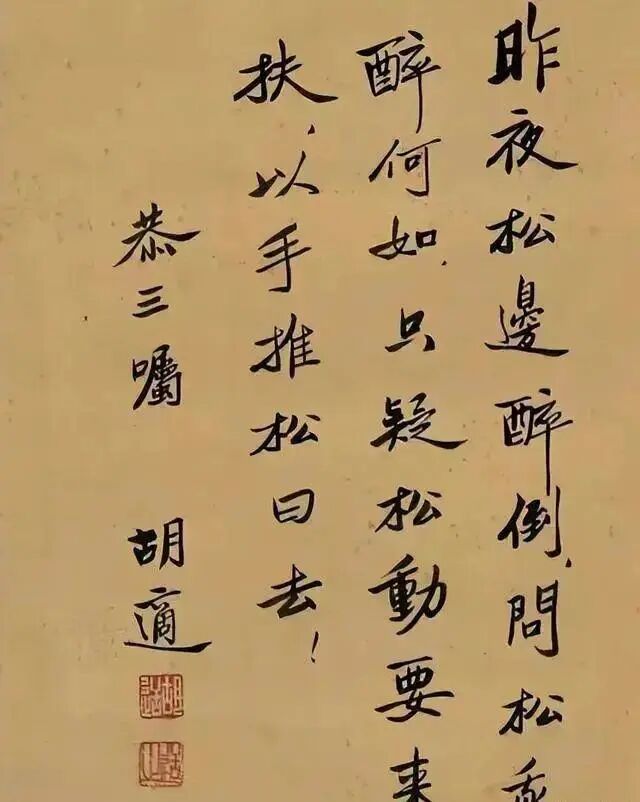 昨夜松邊醉倒、問松我
醉何如、只疑松動要来
扶、以手推松曰去！
恭三囑
胡適